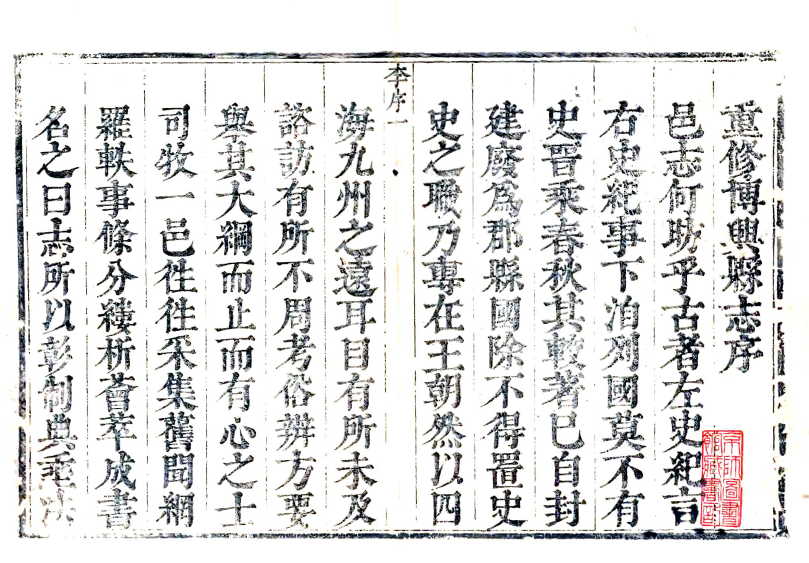 重修博興縣志序
邑志何昉乎古者左史紀言
右史紀事下洎列國莫不有
史晉乘春秋其較著已自封
建廢為郡縣國除不得置史
史之職乃專在王朝然以四
李序一
海九州之遠耳目有所未及
諮訪有所不周考俗辨方要
舉其大綱而止而有心之士
司牧一邑徃徃采集舊聞網
羅軼事條分縷析薈萃成書
名之曰志所以彰制典垂